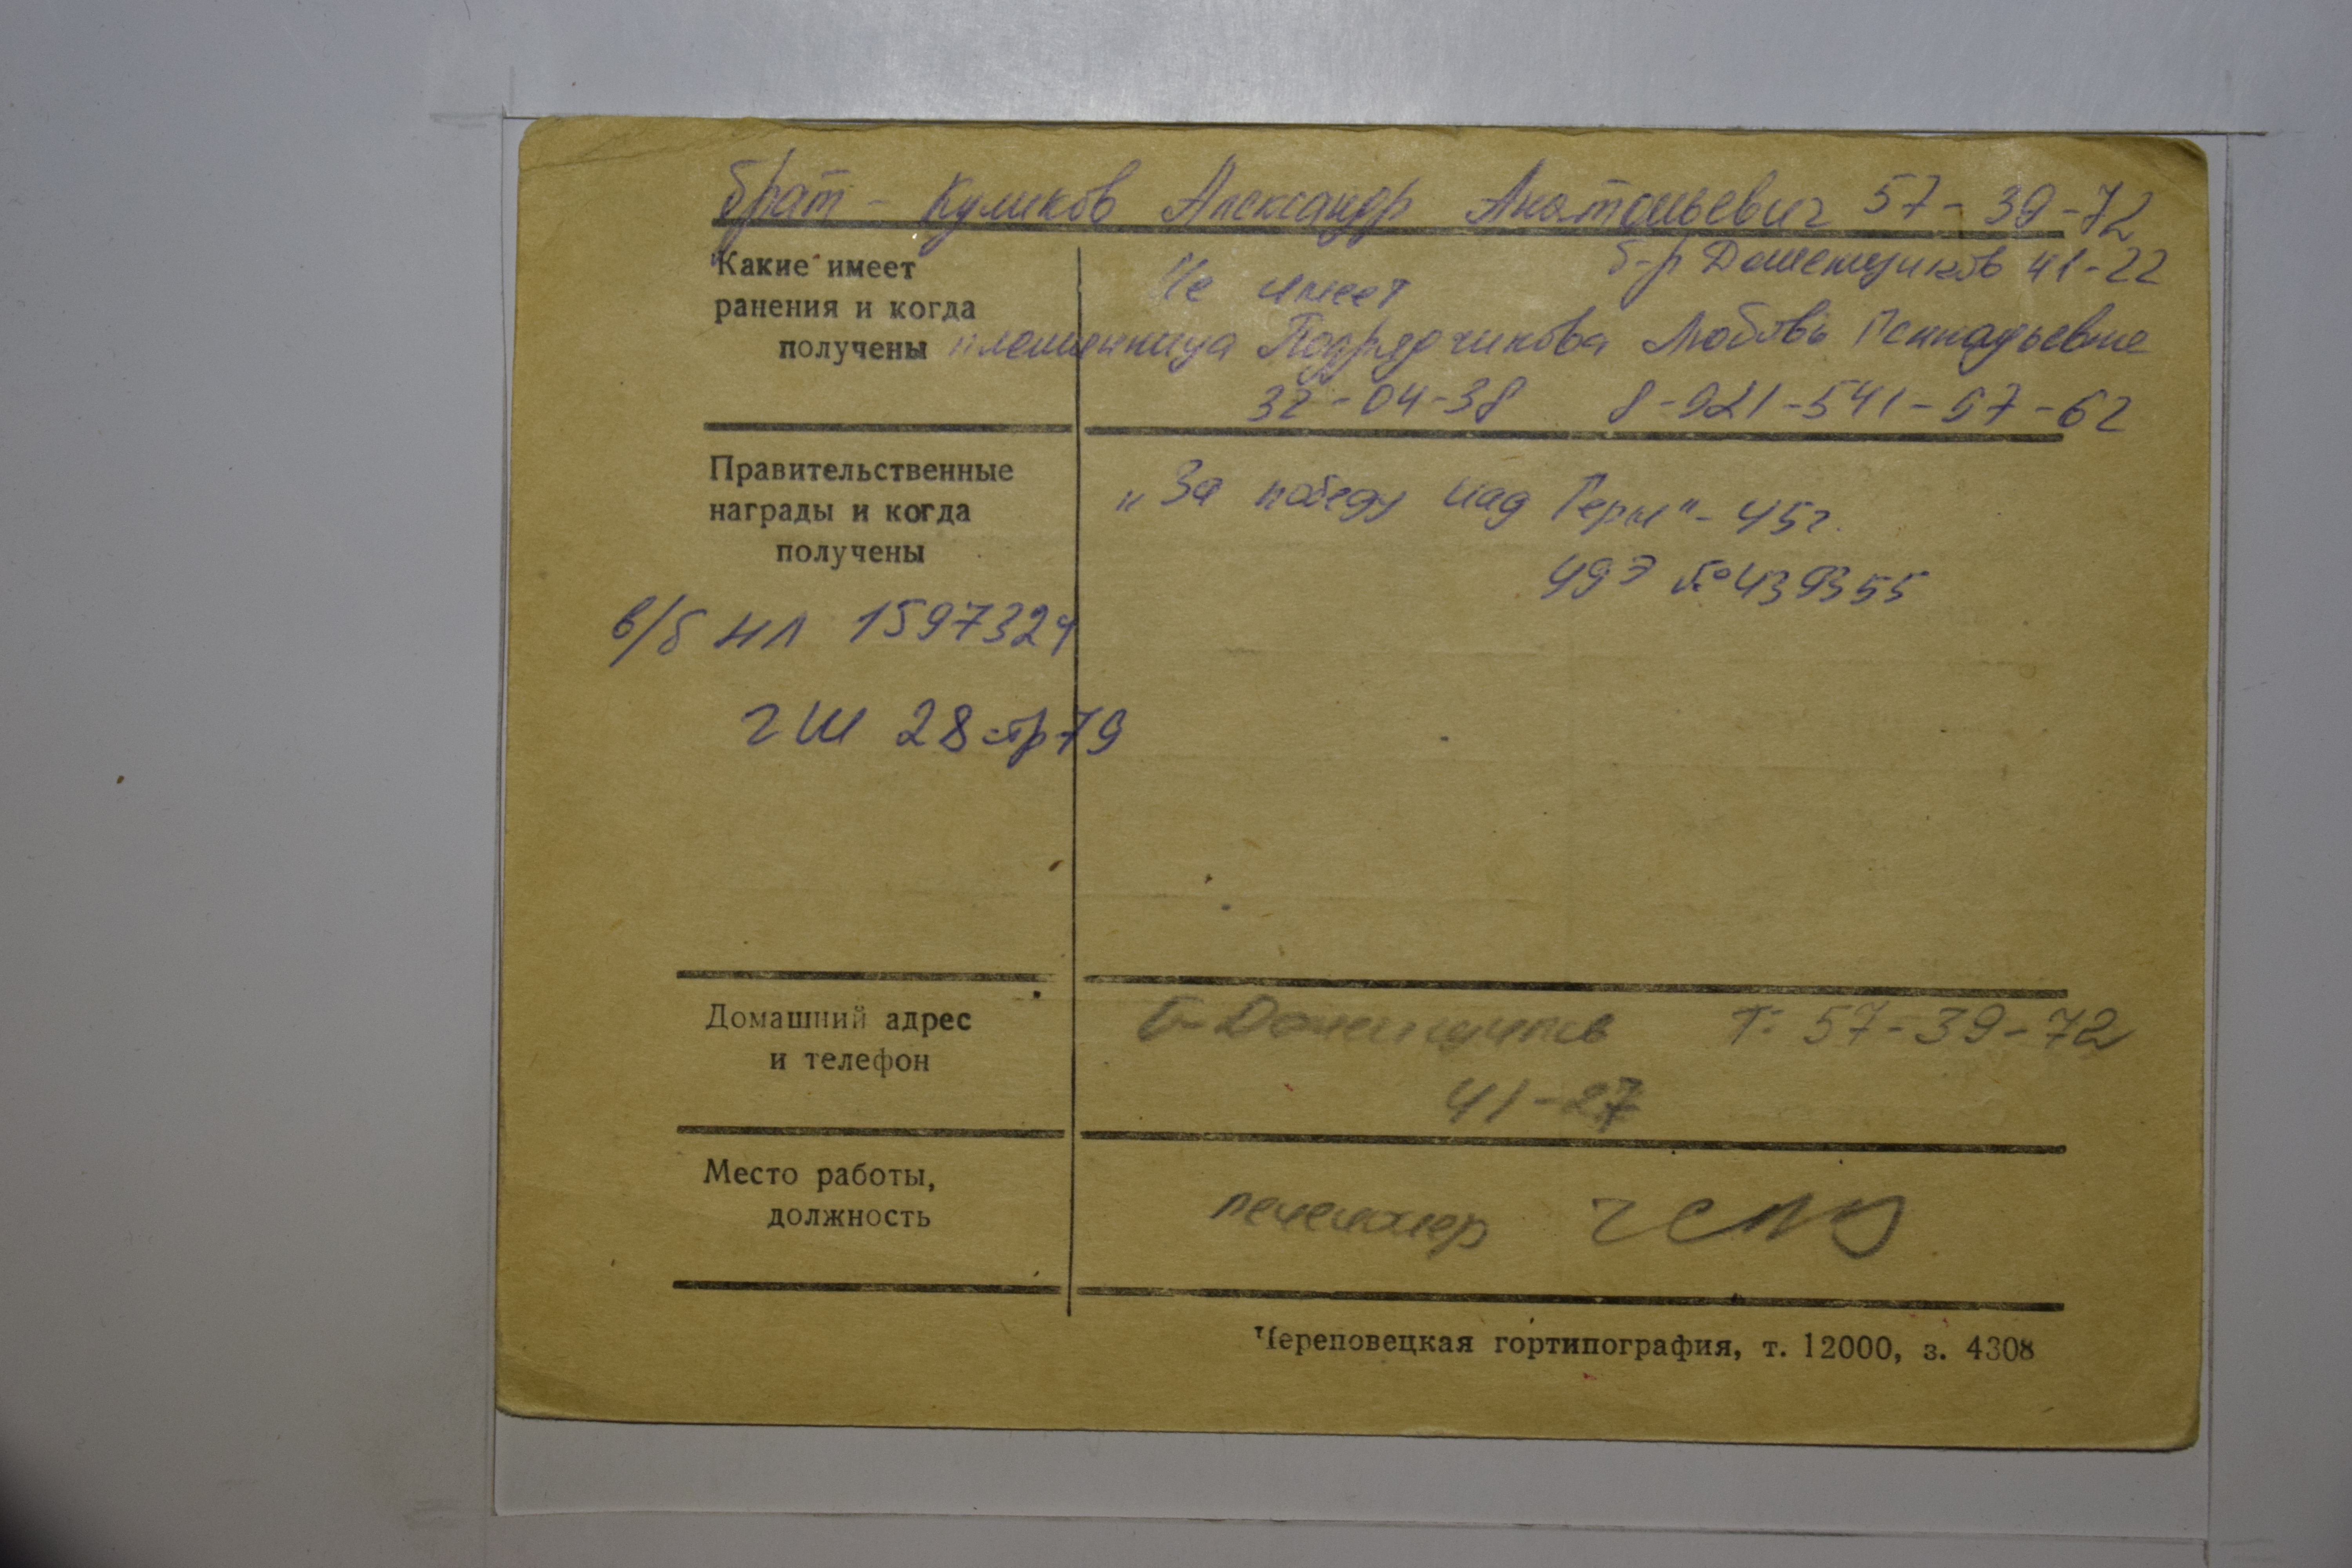 брат - Куликов Александр Анатольевич 57-39-72
Какие имеет
ранения и когда
получены
Не имеет
б-р Доменщиков 41-22
племянница Подрядчикова Любовь Геннадьевне
32-04-38 8-921-541-57-62
Правительственные
награды и когда
получены
„За победу над Герм" - 45г.
49э №439355
в/б НЛ 1597324
ГШ 28 стр 79
Домашний адрес
и телефон
б-Доменщиков т. 57-39-72
41-27
Место работы,
должность
пенсионер
Череповецкая гортипография, т. 12000, з. 4308